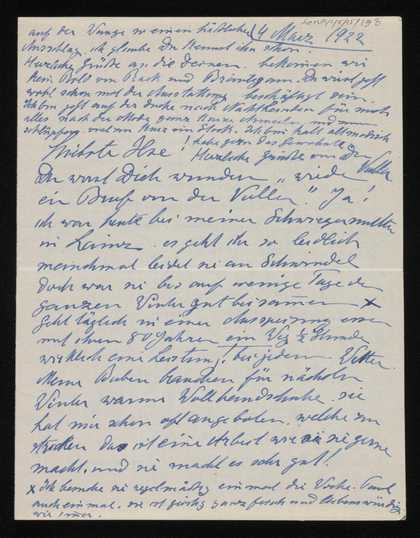 auf der Wange so einen häßlichen 4 März 1922
Ausschlag, ich glaube Du kennst ihn schon.
Herzliche Grüße an die Deinen bekommen wir
kein Bild von Back und Bräutigam. Du wirst jetzt
wohl schon mit der Ausstattung beschäftigt sein.
Ich bin jetzt auf der Suche nach für mich
alles nach der Mode ganz kurze Aermeln und
kurz ein Rock. Ich bin halt altmodisch
habe gern das
Herzliche Grüße von Deiner
Vuller
Liebste Ilse!
Du wirst Dich wundern "wieder
ein Brief von der Vuller". Ja!
ich war heute bei meiner Schwiegermutter
in Lainz. es geht ihr so leidlich
manchmal leidet sie an Schwindel
doch war sie bis auf wenige Tage den
ganzen Winter gut beisammen x
Geht täglich in einer Ausspeisung essen
mit ihren 80 Jahren ein Weg ½ Stunde
wirklich eine Leistung, bei jedem Wetter.
Meine Buben brauchen für nächsten
Winter warme Wollhandschuhe. sie
hat mir schon oft angeboten, welche zu
stricken das ist eine Arbeit wie sie sie gerne
macht, und sie macht es sehr gut.
x ich besuche sie regelmäßig einmal die Woche.
auch einmal. sie ist geistig ganz frisch und liebenswürdig
wie immer.